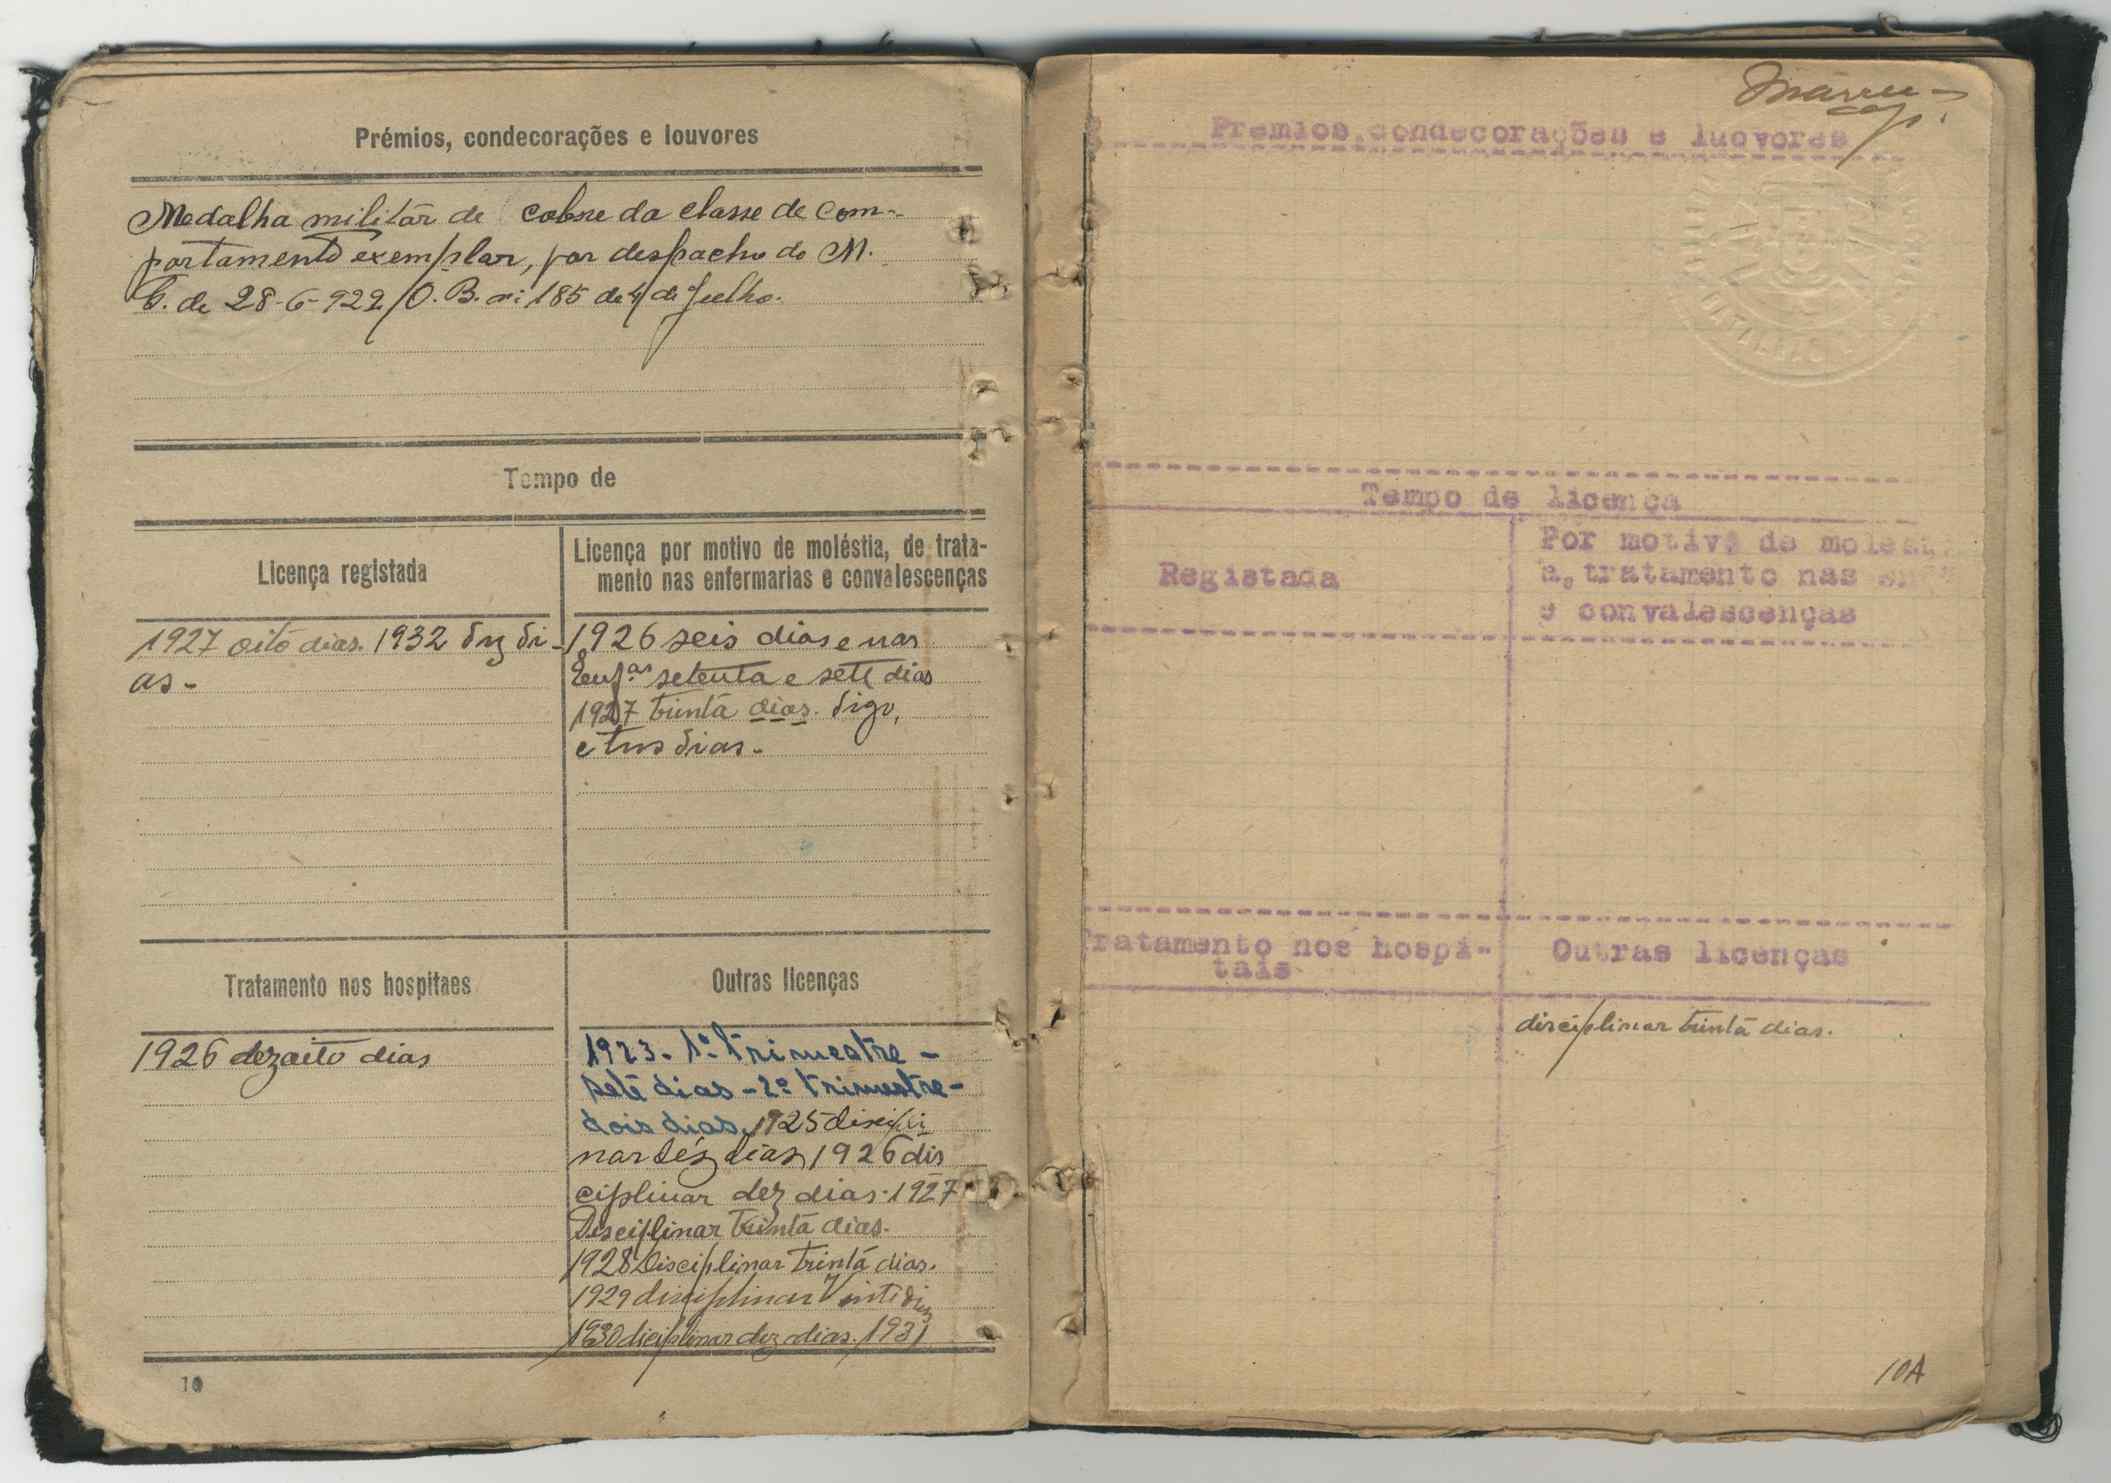 Prémios, condecorações e louvores
Medalha militár de cobre da classe de com-
portamento exemplar, por despacho do M.
G. de 28-6-922 O. B. nº 185 de 4 de Julho.
Tempo de
Licença registada
1927 oito dias. 1932 dez di-
as-
Licença por motivo de moléstia, de trata-
mento nas enfermarias e convalescenças
1926 seis dias e nas
Enfas setenta e sete dias
1927 trinta dias. digo,
e tres dias-
Tratamento nos hospitaes
1926 dezoito dias
Outras licenças
1923- 1º trimestre -
sete dias - 2º trimestre -
dois dias. 1925 discipli
nar déz dias 1926 dis
ciplinar dez dias. 1927
Disciplinar trinta dias.
1928 Disciplinar trinta dias.
1929 disciplinar vinte dias
1930 diciplinar dez dias. 1931
10
cap.
Premios,condecorações e luovores
BATALHÃO
Tempo de licença
Registada
Por motivo de molesti
a, tratamento nas enf
e convalescenças
Tratamento nos hospi-
tais
Outras licenças
disciplinar trinta dias.
10A